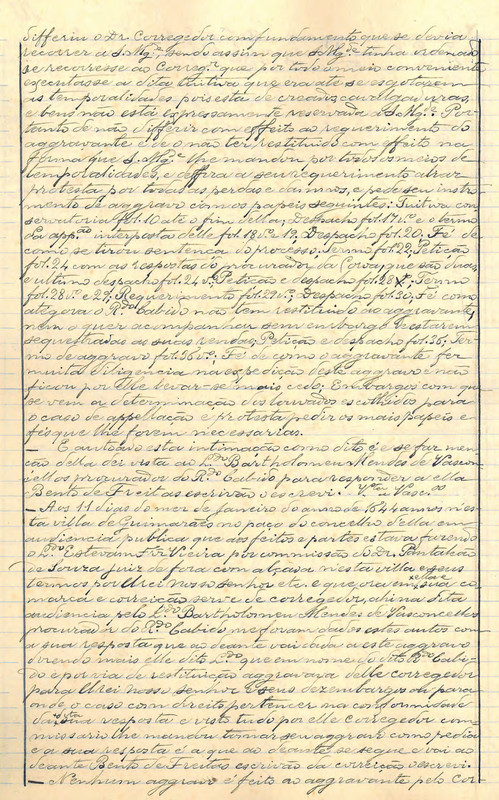 differiu o Dr. Corregedor com fundamento que se devia
recorrer a S. Mgᵉ, sendo assim que S. Mgᵈᵉ tinha ordenado
se recorresse ao Corregᵒʳ que por todo o meio conveniente
executasse a dita tuitiva que era até se esgotarem
as temporalidades, pois esta de creados, cavalgaduras,
e bens não está expressamente reservada a S. Mgᵈᵉ. Por-
tanto de não differir com effeito ao requerimento do
aggravante e de o não ter restituido com effeito na
forma que S. Mgᵈᵉ lhe mandou por todos os meios de
temporalidades, e differa a seu requerimento atraz
protesta por todas as perdas e damnos, e pede seu instru-
mento de aggravo com os papeis seguintes: Tuitiva con-
servatoria fol. 10 até o fim della; Despacho fol. 17 vᵒ e o termo
da appᵃᵒ interposta delle fol. 18 vᵒ e 19. Despacho fol. 20. Fé de
como se tirou sentença do processo; Termo fol. 22; Petição
fol. 24 com as respostas do procurador da Corôa que são duas,
e ultimo despacho fol. 24 vᵒ; Petição e despacho fol. 28; Termo
fol. 28 vᵒ e 29; Requerimento fol. 29 vᵒ; Despacho fol. 30; Fé com
o Rᵈᵒ Cabido não tem restituido ao aggravante,
nem o quer acompanhar sem embargo de estarem
sequestradas as suas rendas; Petição e despacho fol. 36; Ter-
mo de aggravo fol. 36 vᵒ; Fé de como o aggravante fez
muita diligencia na expedição deste aggravo e não
ficou por elle levar-se mais cedo; Embargos com que
se vem a determinação dos louvados escolhidos para
o caso de appellação e protesta pedir os mais papeis e
fés que lhe forem necessarias.
— E autoado esta intimação como dito é e se faz men-
ção della dei vista ao Lᵈᵒ Bartholomeu Mendes de Vascon-
cellos procurador do Rᵈᵒ Cabido para responder a ella
Bento de Freitas escrivão o escrevi.
— Aos 11 dias do mez de Janeiro do anno de 1644 annos n'es-
ta villa de Guimarães no paço do concelho della em
audiencia publica que aos feitos e partes estava fazendo
o Lᵈᵒ Estevam Frz Vieira por commissão do Dr. Pantaleão
de Souza juiz de fora com alçada nesta villa e seus
termos por Elrei nosso senhor etc. e que ora em ella e sua co-
marca e correição serve de corregedor, ahi na dita
audiencia pelo Lᵈᵒ Bartholomeu Mendes de Vasconcellos
procurador do Rᵈᵒ Cabido me foram dados estes autos com
a sua resposta que ao deante vai dada a este aggravo
dizendo mais elle dito Lᵈᵒ que em nome do dito Rᵈᵒ Cabi-
do e por via de restituição aggravava delle corregedor
para Elrei nosso senhor e seus dezembargos da para
onde o caso com direito pertencer na conformidade
da dita sua resposta e visto tudo por elle corregedor com-
missario lhe mandou tomar seu aggravo como pedia
e a sua resposta é a que ao deante se segue e vai ao
deante Bento de Freitas escrivão da correição o escrevi.
— Nenhum aggravo é feito ao aggravante pelo Cor-